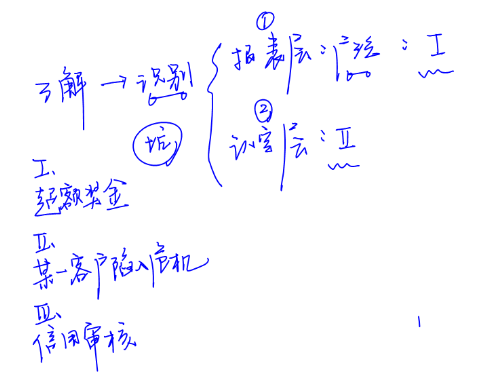 ①
了解 → 识别 { 报表层：广泛：I
坑
② 认定层：II
I、
超额奖金
II、
某一客户陷入危机
III、
信用审核